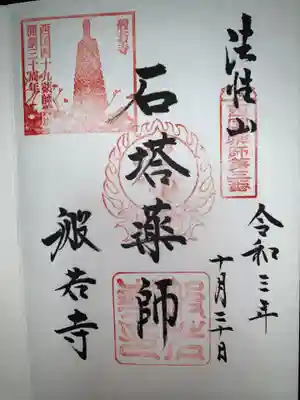 法性山
西国薬師第三番
令和三年
十月三十日
石塔薬師
般若寺
般若寺
開創三十周年